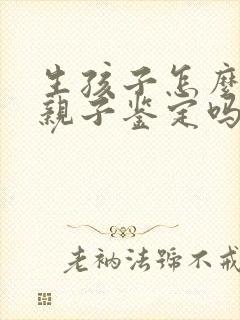 生孩子怎麼
親子鉴定吗
老衲法號不戒